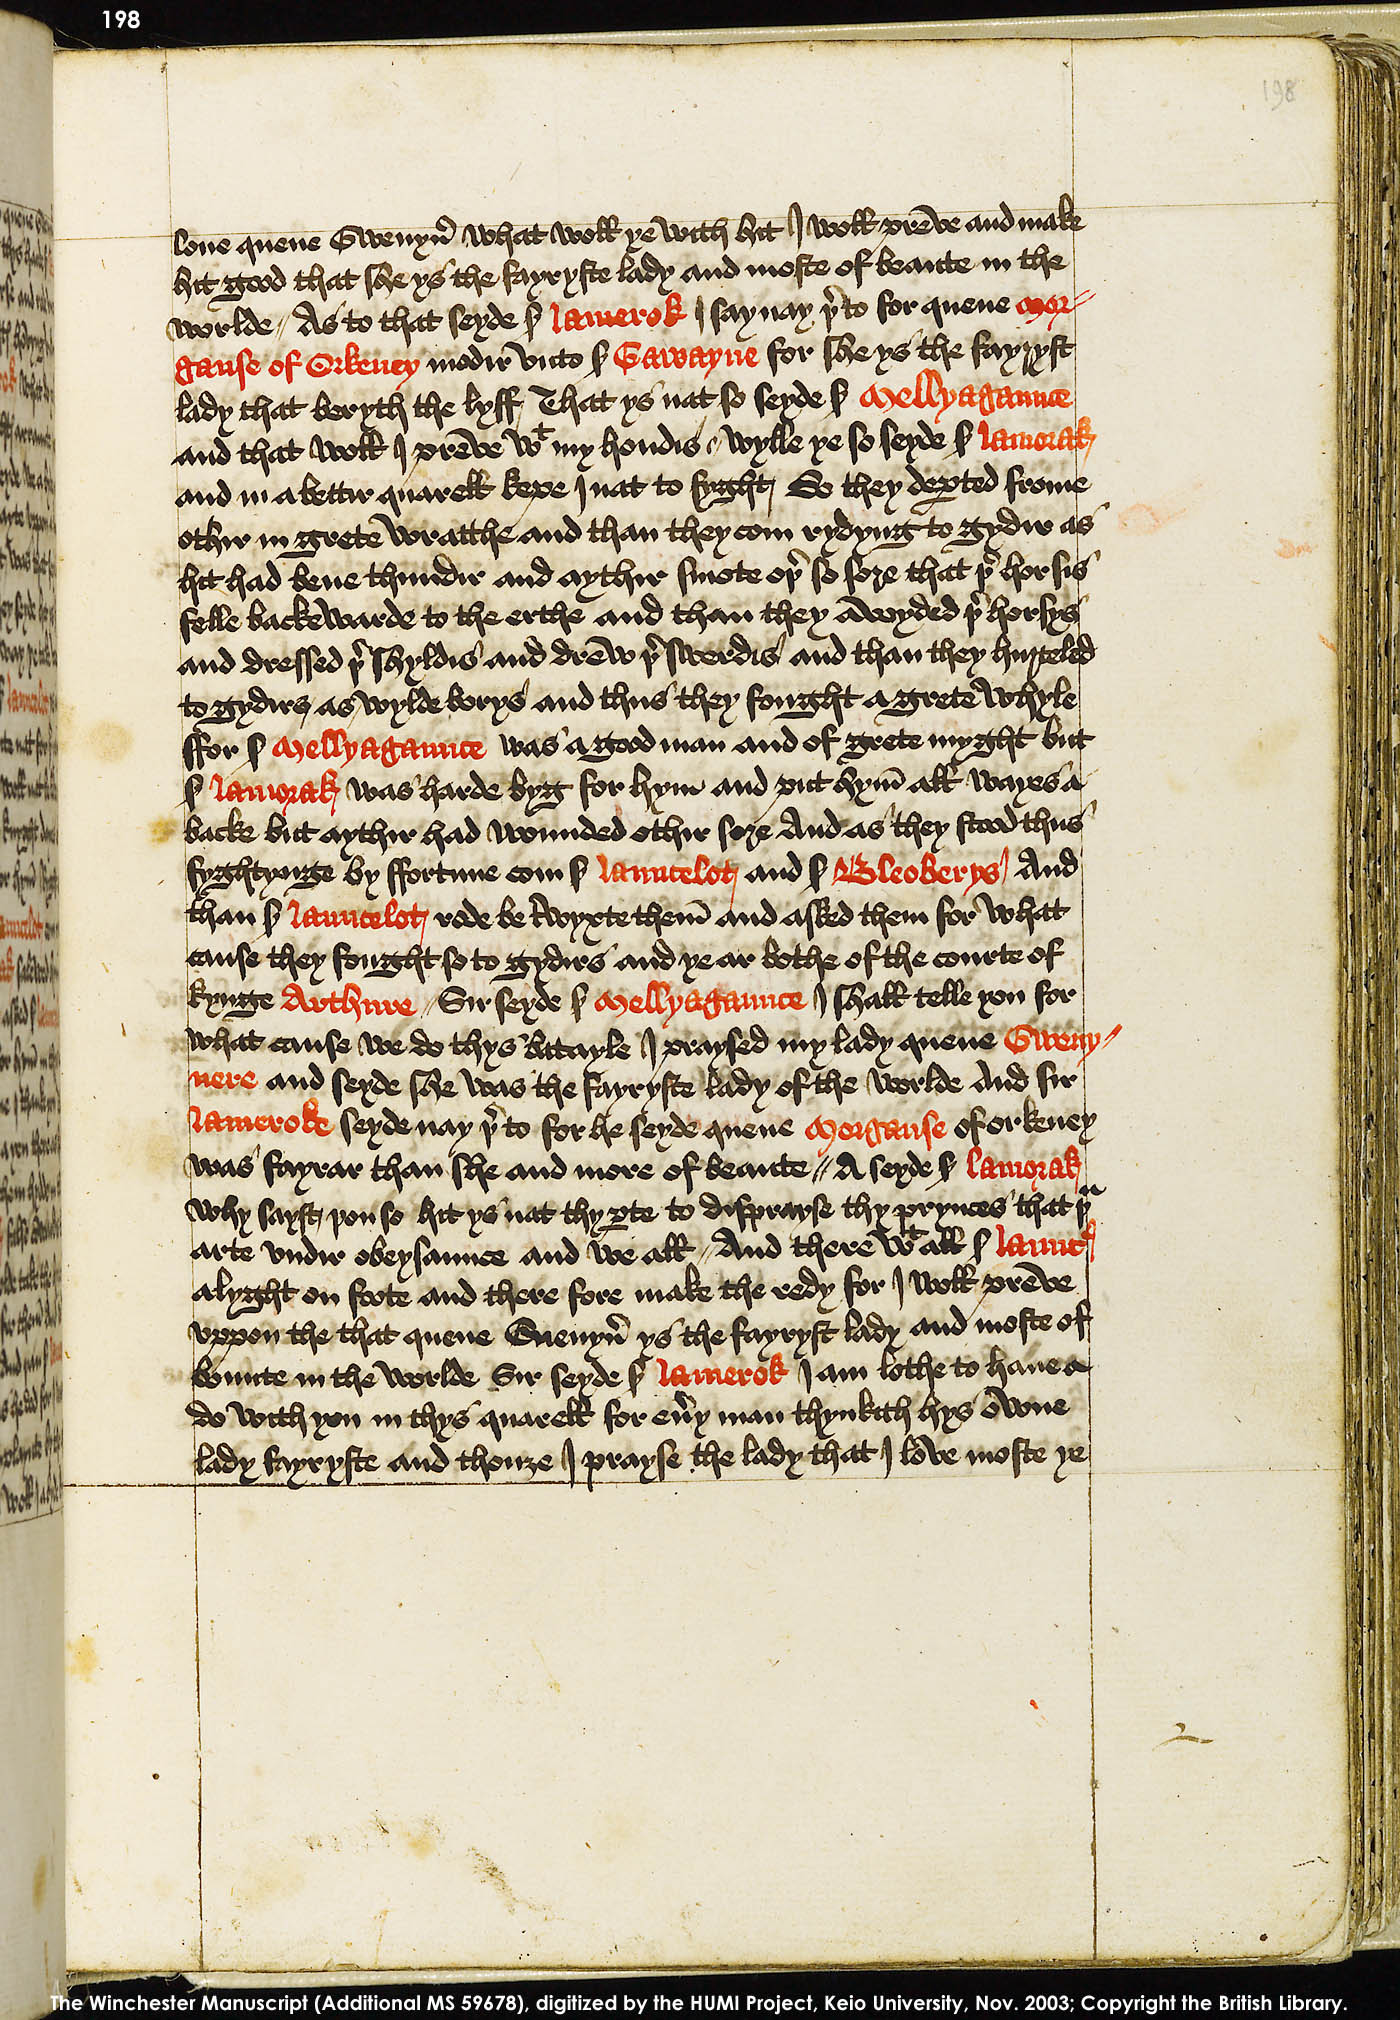 198
198
loue quene Gwenyu&#772; what woll ye with hit I woll preve and make
hit good that she ys the fayryste lady and moste of beaute in the
worlde // As to that seyde ß lamerok I say nay þ to for quene mor-
gause of Orkeney modir vnto ß Gawayne for she ys the fayryst
lady that beryth the lyff / That ys nat so seyde ß Mellyagaunce
and that woll I preve wt my hondis / wylle ye so seyde ß lamorak
and in a bettir quarell kepe I nat to fyght / So they depted frome
othir in grete wratthe and than they com rydyng to gydir as
hit had bene thundir and aythir smote oþ so sore that þ horsis
felle backewarde to the erthe and than they avoyded þ horsys
and dressed þ shyldis and drew þ swerdis and than they hurteled
to gydirs as wylde borys and thus they fought a grete whyle
ffor ß Mellyagaunce was a good man and of grete myght but
ß lamorak was harde byg for hym and put hym all wayes a
backe but aythir had wounded othir sore And as they stood thus
fyghtynge by ffortune com ß launcelot and ß Bleoberys / And
than ß launcelot rode be twyxte them and asked them for what
cause they fought so to gydirs and ye ar bothe of the courte of
kynge Arthure / Sir seyde ß Mellyagaunce I shall telle you for
what cause we do thys batayle I praysed my lady quene Gweny-
nere and seyde she was the fayryste lady of the worlde And sir
lameroke seyde nay þ to for he seyde quene Morgause of orkeney
was fayrar than she and more of beaute // A seyde ß lamorak
why sayst þou so hit ys nat thy pte to disprayse thy prynces that þu
arte vndir obeysaunce and we all / And there wt all ß launc
alyght on foote and there fore make the redy for I woll preve
vppon the that quene Gueny&#772;n ys the fayryst lady and moste of
bounte in the worlde Sir seyde ß lamerok I am lothe to haue a
do with you in thys quarell for eu&#772;y man thynkith hys owne
lady fayryste and thouze I prayse the lady that I love moste ye
The Winchester Manuscript (Additional MS 59678), digitized by the HUMI Project, Keio University, Nov. 2003; Copyright the British Library.